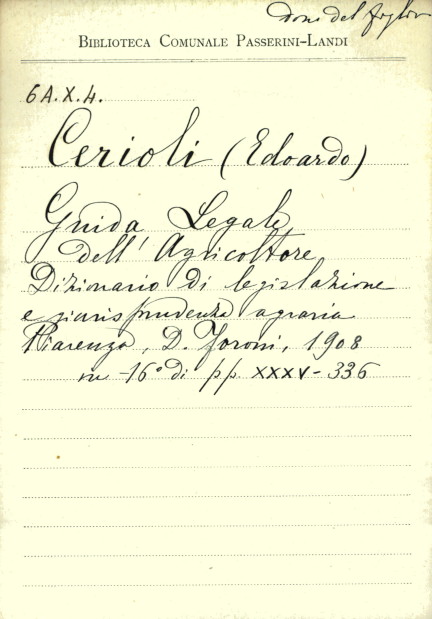 dono del figlio
BIBLIOTECA COMUNALE PASSERINI-LANDI
6A.X.4.
Cerioli (Edoardo)
Guida Legale
dell' Agricoltore
Dizionario di legislazione
e giurisprudenza agraria
Piacenza, D. Foroni, 1908
in -16° di pp. XXXV - 336